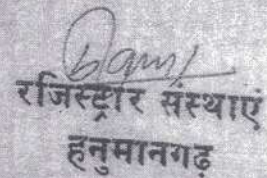 रजिस्ट्रार संस्थाएं
हनुमानगढ़